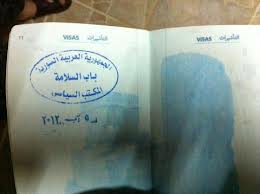 VISAS التأشيرات
الجمهورية العربية السورية
باب السلامة
المكتب السياسي
٥ آب ٢٠١٢
VISAS التأشيرات